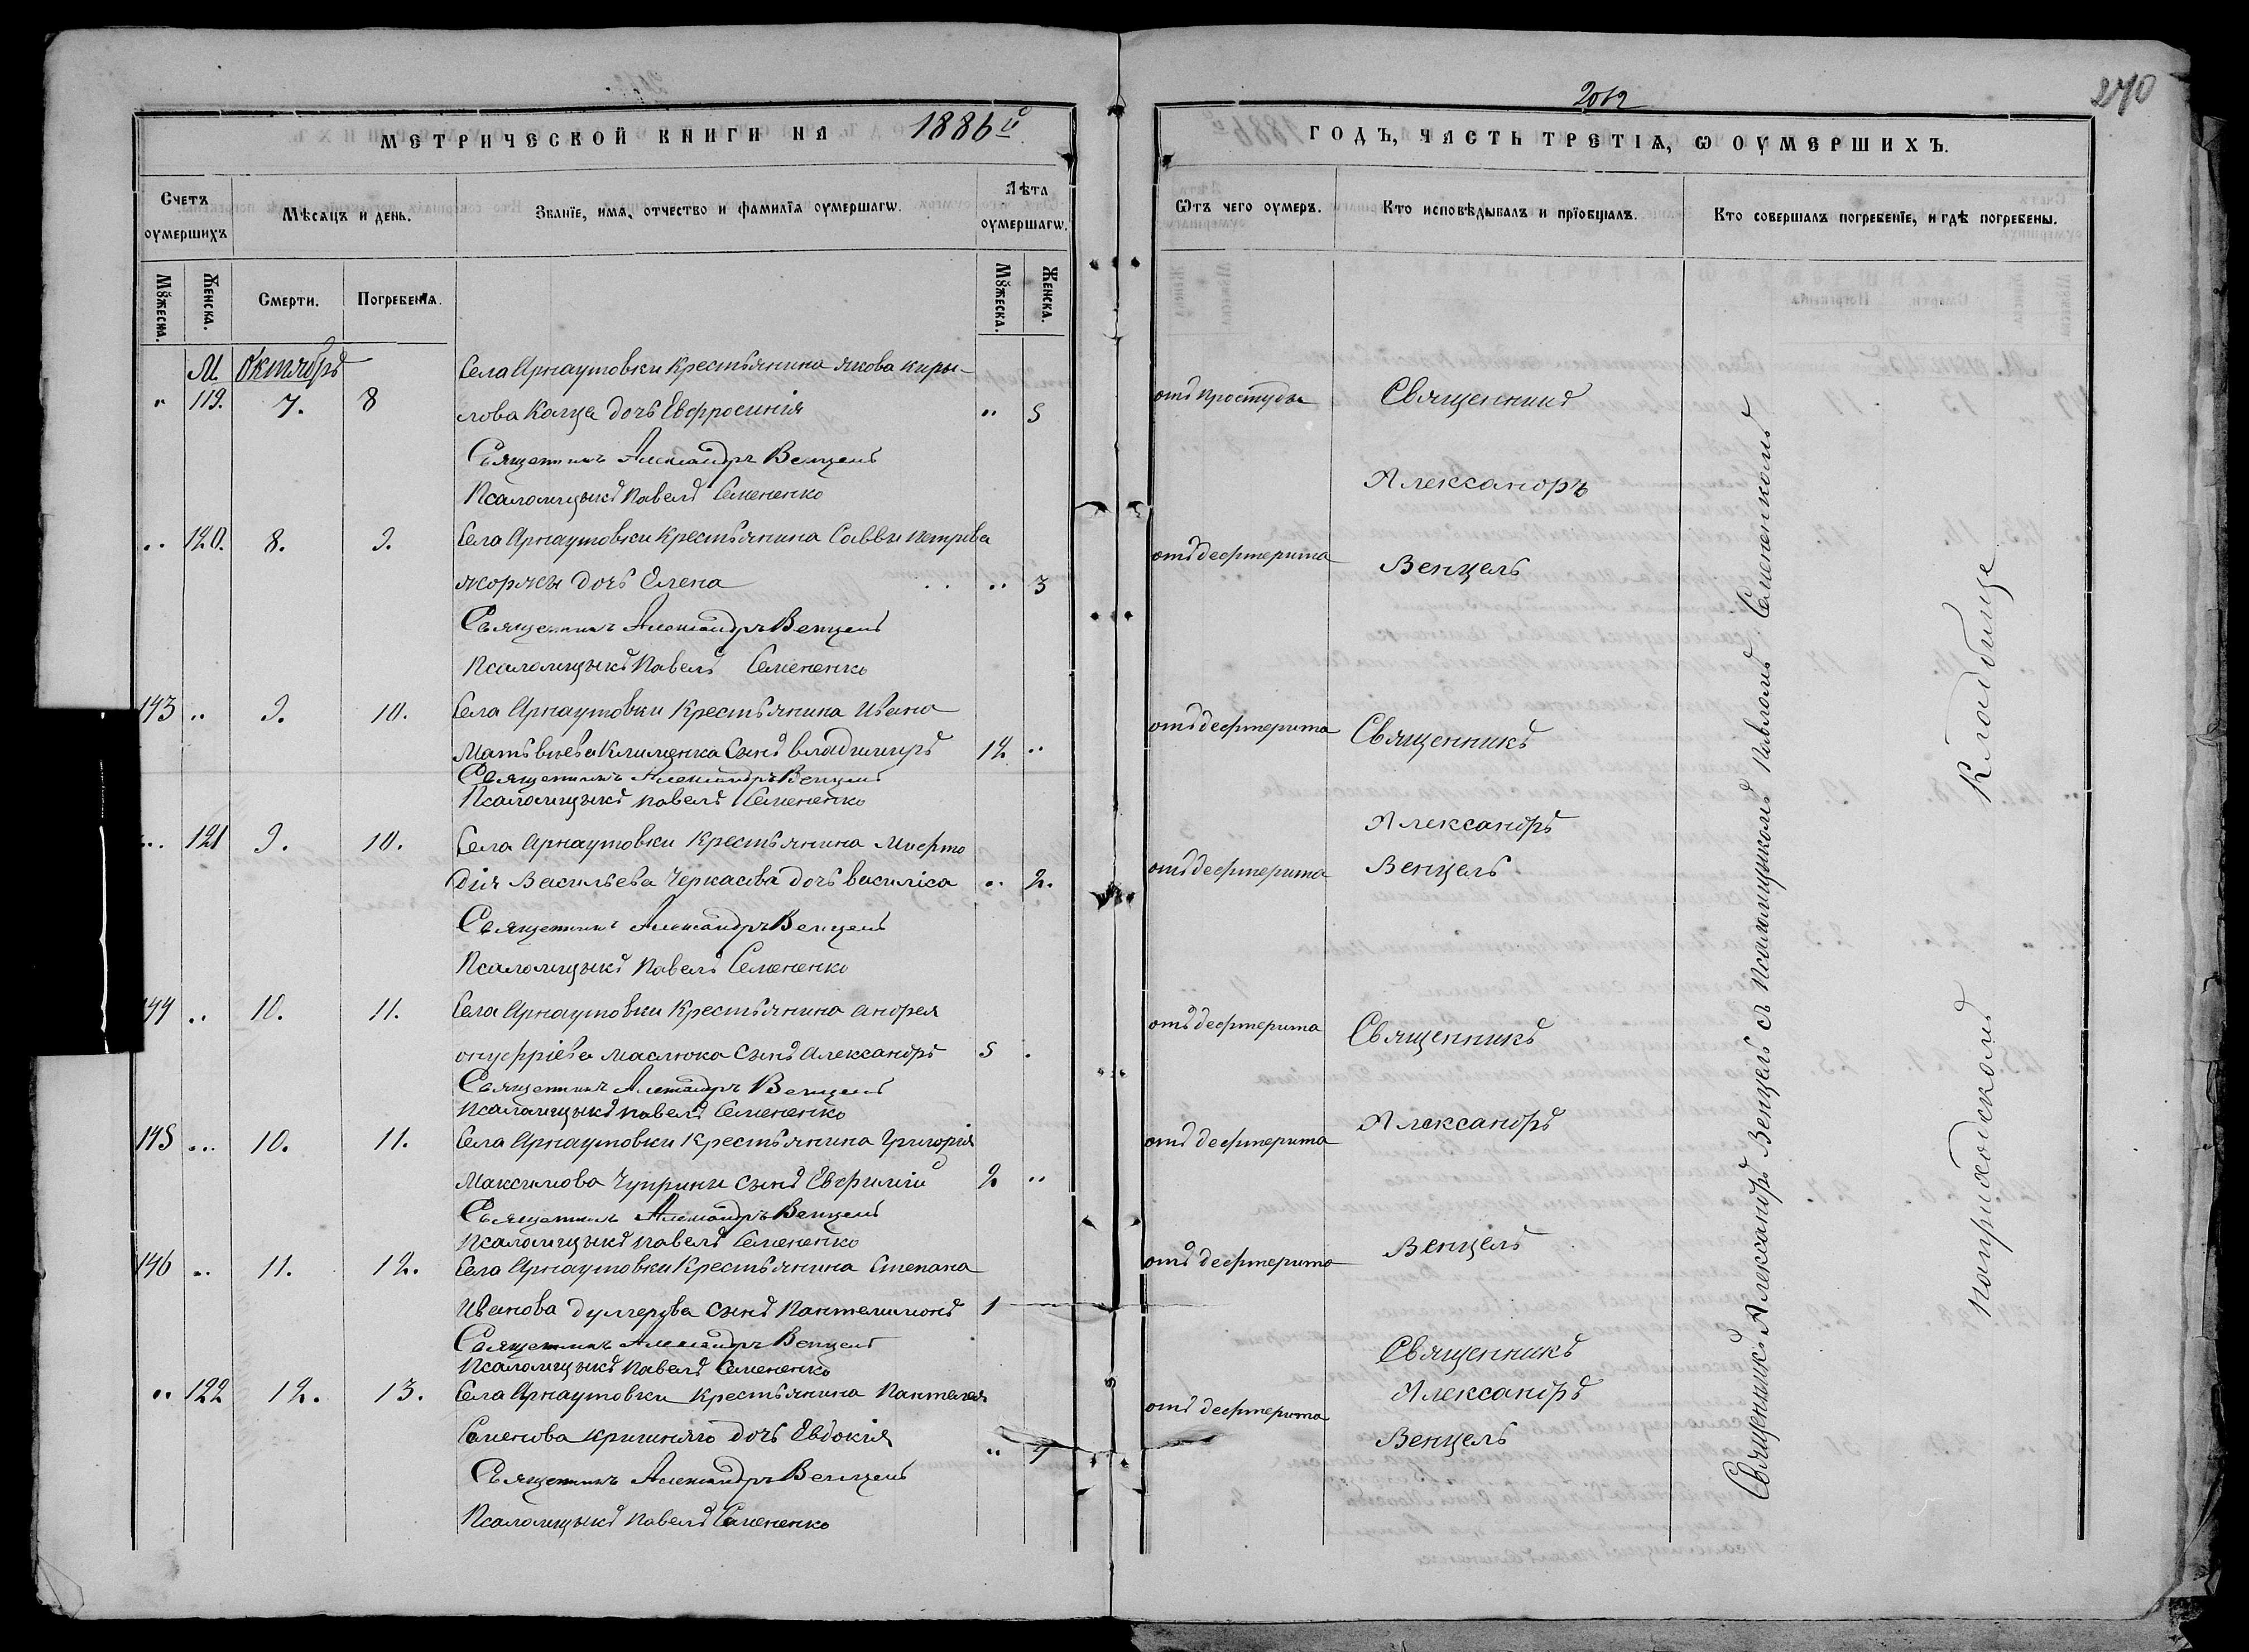 2012
270
МЕТРИЧЕСКОЙ КНИГИ НА 1886й
ГОДЪ, ЧАСТЬ ТРЕТІѦ, Ѡ ОУМЕРШИХЪ.
Счетъ оумершихъ
Мѣсѧцъ и день.
Званіе, имѧ, отчество и фамиліѧ оумершагѡ.
Лѣта оумершагѡ.
Ѿтъ чего оумеръ.
Кто исповѣдывалъ и пріобщалъ.
Кто совершалъ погребеніе, и гдѣ погребены.
Мꙋжеска.
Женска.
Смерти.
Погребеніѧ.
Мꙋжеска.
Женска.
М. Октябрь
Села Арнаутовки Крестьянина Якова Киры-
" 119. 7. 8 лова Калца дочь Евфросинія " 5 отъ простуды Священникъ
Священникъ Александръ Венцель
Александръ
Псаломщыкъ Павелъ Семененко
" 120. 8. 9. Села Арнаутовки Крестьянина Саввы Петрова отъ дефтерита Венцель
жоржи дочь Елена " 3
Священникъ Александръ Венцель
Псаломщыкъ Павелъ Семененко
143 " 9. 10. Села Арнаутовки Крестьянина Ивана отъ дефтерита Священникъ
Матвѣева Клименка Сынъ Владимиръ 12 "
Священникъ Александръ Венцель
Псаломщыкъ Павелъ Семененко
Александръ
" 121 9. 10. Села Арнаутовки Крестьянина Мефто
дія Васильева Черкасова дочь Василіса " 2. отъ дефтерита Венцель
Священникъ Александръ Венцель
Псаломщыкъ Павелъ Семененко
144 " 10. 11. Села Арнаутовки Крестьянина Андрея отъ дефтерита Священникъ
Онуфріева Маслюка сынъ Александръ 5 "
Священникъ Александръ Венцель
Псаломщыкъ Павелъ Семененко
Александръ
145 " 10. 11. Села Арнаутовки Крестьянина Григорія отъ дефтерита
Максимова Чуприны сынъ Евфимій 2 "
Священникъ Александръ Венцель
Псаломщыкъ Павелъ Семененко
146 " 11. 12. Села Арнаутовки Крестьянина Степана отъ дефтерита Венцель
Иванова Дулгерова сынъ Пантелимонъ 1
Священникъ Александръ Венцель
Псаломщыкъ Павелъ Семененко
Священникъ
" 122 12. 13. Села Арнаутовки Крестьянина Пантелея отъ дефтерита Александръ
Семенова дочь Евдокія " 4 Венцель
Священникъ Александръ Венцель
Псаломщыкъ Павелъ Семененко
Священникъ Александръ Венцель съ Псаломщыкомъ Павломъ Семененкомъ
на приходскомъ Кладбище